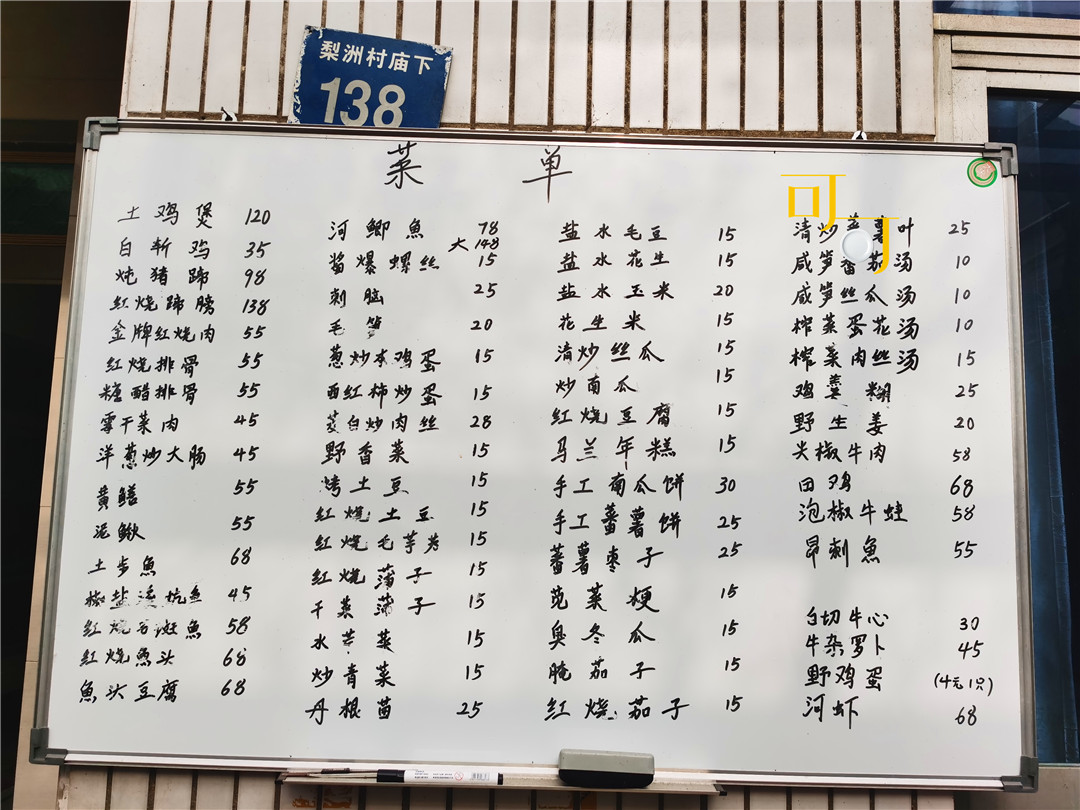 梨洲村庙下
138
菜单
土鸡煲 120
白斩鸡 35
炖猪蹄 98
红烧蹄膀 138
金牌红烧肉 55
红烧排骨 55
糖醋排骨 55
霉干菜肉 45
洋葱炒大肠 45
黄鳝 55
泥鳅 55
土步魚 68
椒盐溪坑鱼 45
红烧石斑魚 58
红烧魚头 68
魚头豆腐 68
河鲫魚 78
大 148
酱爆螺丝 15
刺脑 25
毛笋 20
葱炒本鸡蛋 15
西红柿炒蛋 15
茭白炒肉丝 28
野香菜 15
烤土豆 15
红烧土豆 15
红烧毛芋艿 15
红烧蒲子 15
干菜蒲子 15
水芹菜 15
炒青菜 15
丹根苗 25
盐水毛豆 15
盐水花生 15
盐水玉米 20
花生米 15
清炒丝瓜 15
炒南瓜 15
红烧豆腐 15
马兰年糕 15
手工南瓜饼 30
手工蕃薯饼 25
蕃薯枣子 25
苋菜梗 15
臭冬瓜 15
腌茄子 15
红烧茄子 15
可可
清炒蕃薯叶 25
咸笋番茄汤 10
咸笋丝瓜汤 10
榨菜蛋花汤 10
榨菜肉丝汤 15
鸡羹糊 25
野生姜 20
尖椒牛肉 58
田鸡 68
泡椒牛蛙 58
昂刺魚 55
白切牛心 30
牛杂罗卜 45
野鸡蛋 (4元1只)
河虾 68